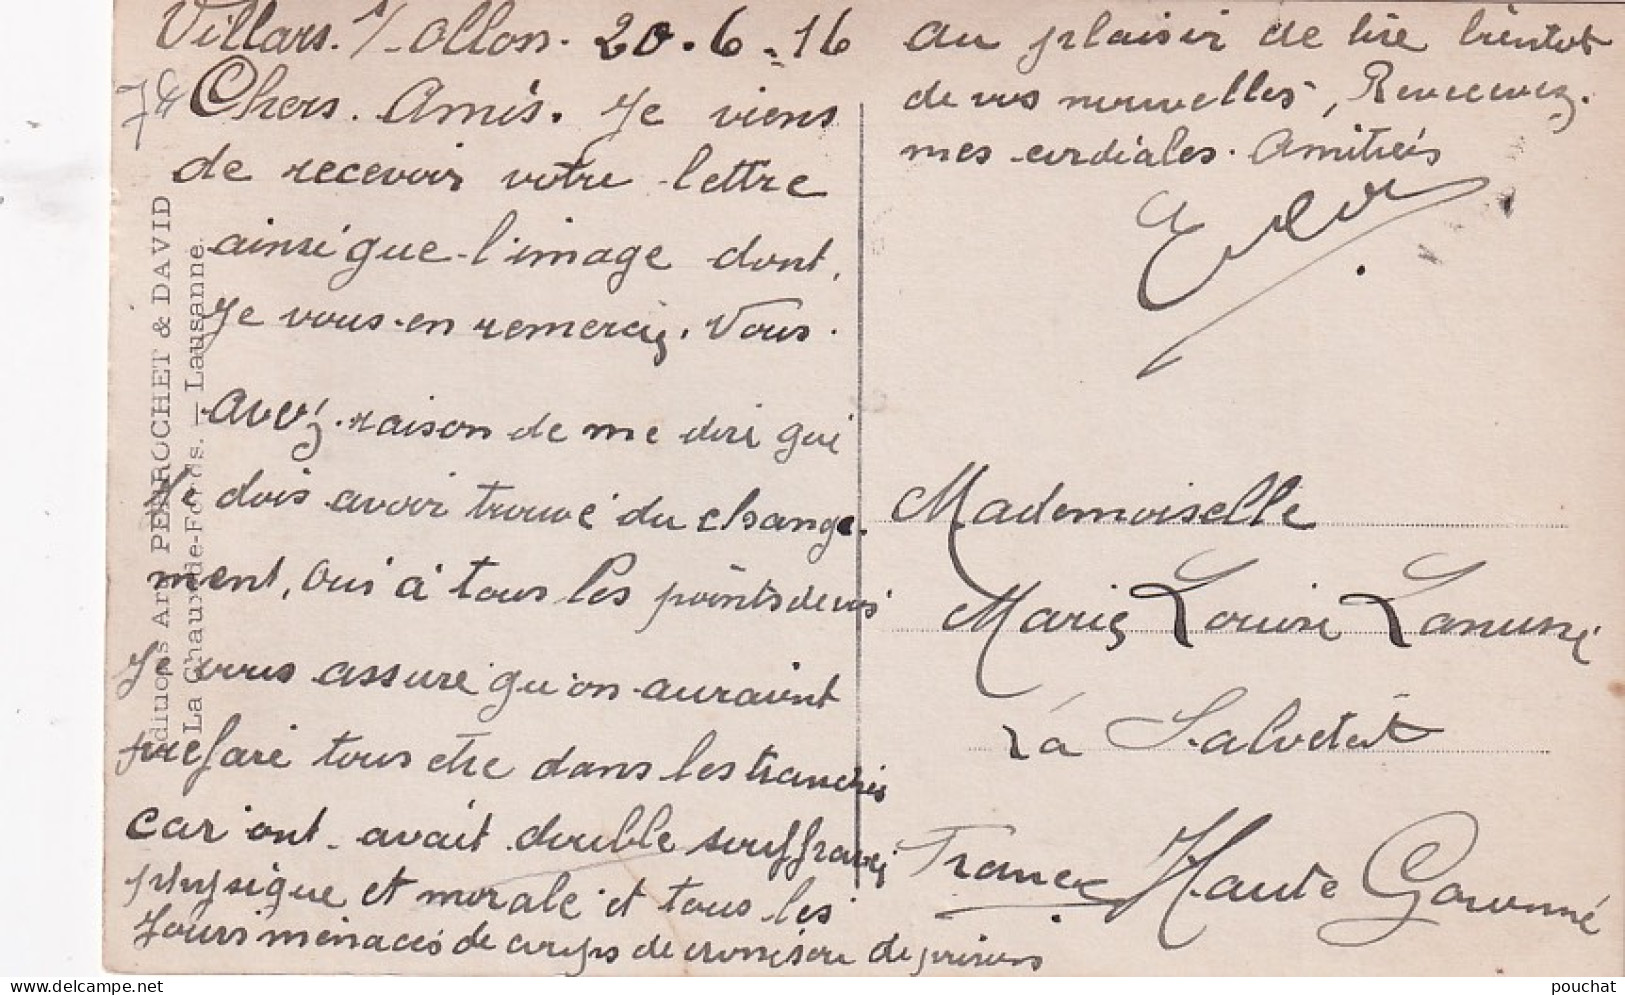 Villars. s/-Ollon. 20.6.16
Chers. Amis. Je viens
de recevoir votre lettre
ainsi que l'image dont,
Je vous-en remerciz. Vous.
avez. raison de me dire qui
Je dois avoir trouvé du change.
ment, Oui à tous les points de vus
Je vous assure qu'on auraient
prefaré tous etre dans les tranchis
car ont avait double souffrances
physique et morale et tous les
Jours menacés de de prisons
au plaisir de lire bientot
de vos nouvelles, Recevez.
mes cordiales. Amitiés
Mademoiselle
Marie Louise
La Salvetat
France Haute Garonne
7€
Editions Art. PERROCHET & DAVID
La Chaux-de-Fonds. — Lausanne.
pouchat